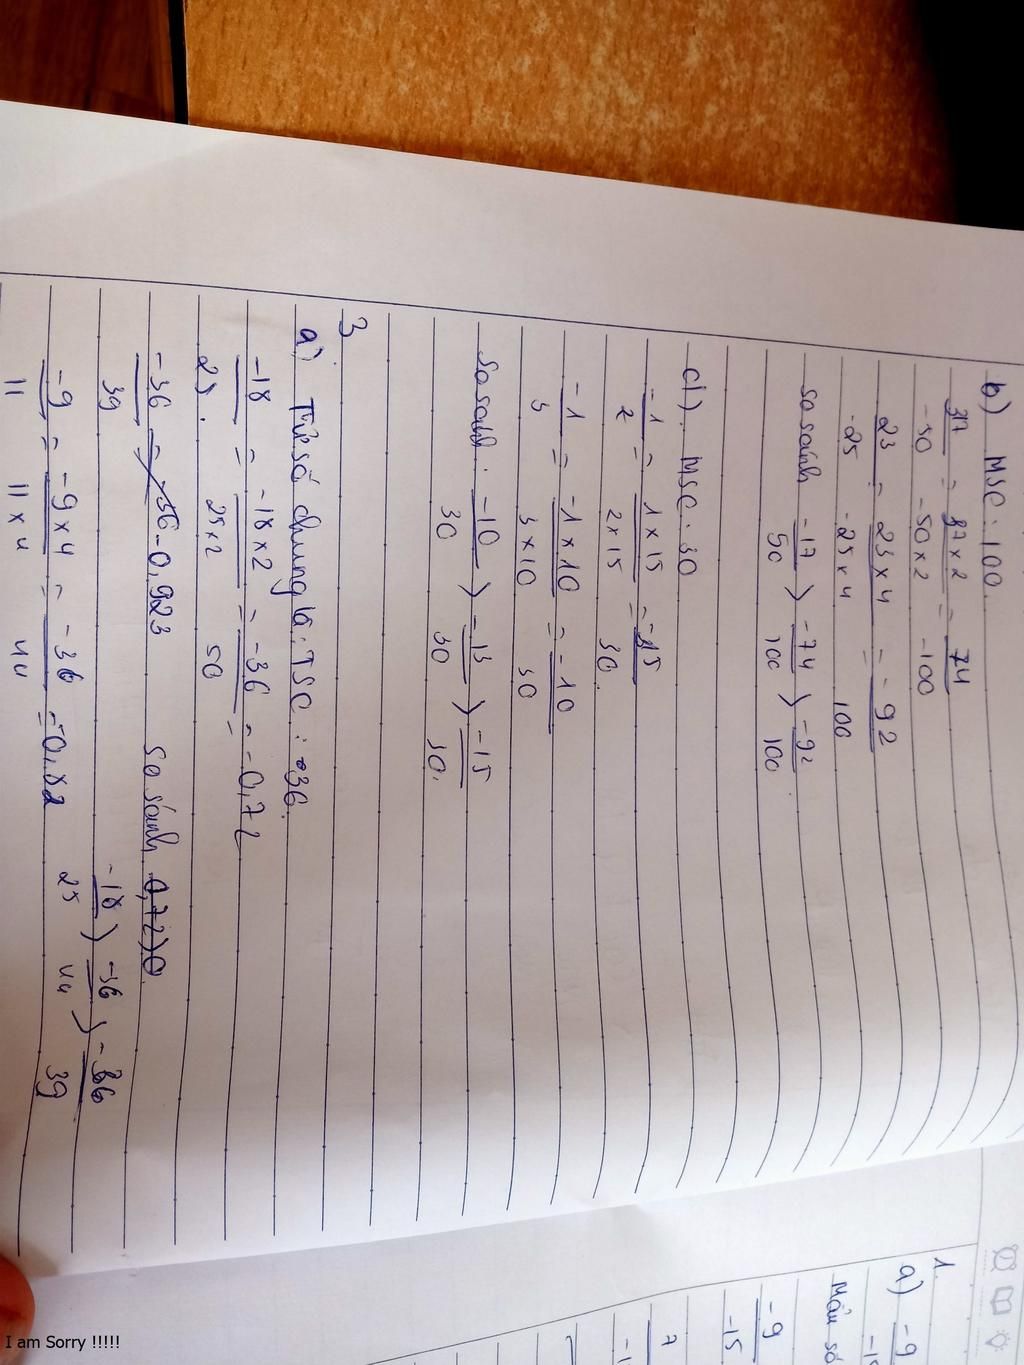 b) MSC: 100
37/-50 = 37×2/-50×2 = 74/-100
23/-25 = 23×4/-25×4 = -92/100
so sánh -17/50 > -74/100 > -92/100
c). MSC: 30
-1/2 = 1×15/2×15 = -15/30.
-1/3 = -1×10/3×10 = -10/30
So sánh: -10/30 > -13/30 > -15/30.
3.
a) Tử số chung là: TSC: -36.
-18/25. = -18×2/25×2 = -36/50 = -0,72
-36/39 = -0,923 So sánh
-9/11 = -9×4/11×4 = -36/44 = -0,82 -18/25 > -36/44 > -36/39
1.
a) -9
Mẫu số
-9/-15
7
I am Sorry !!!!!